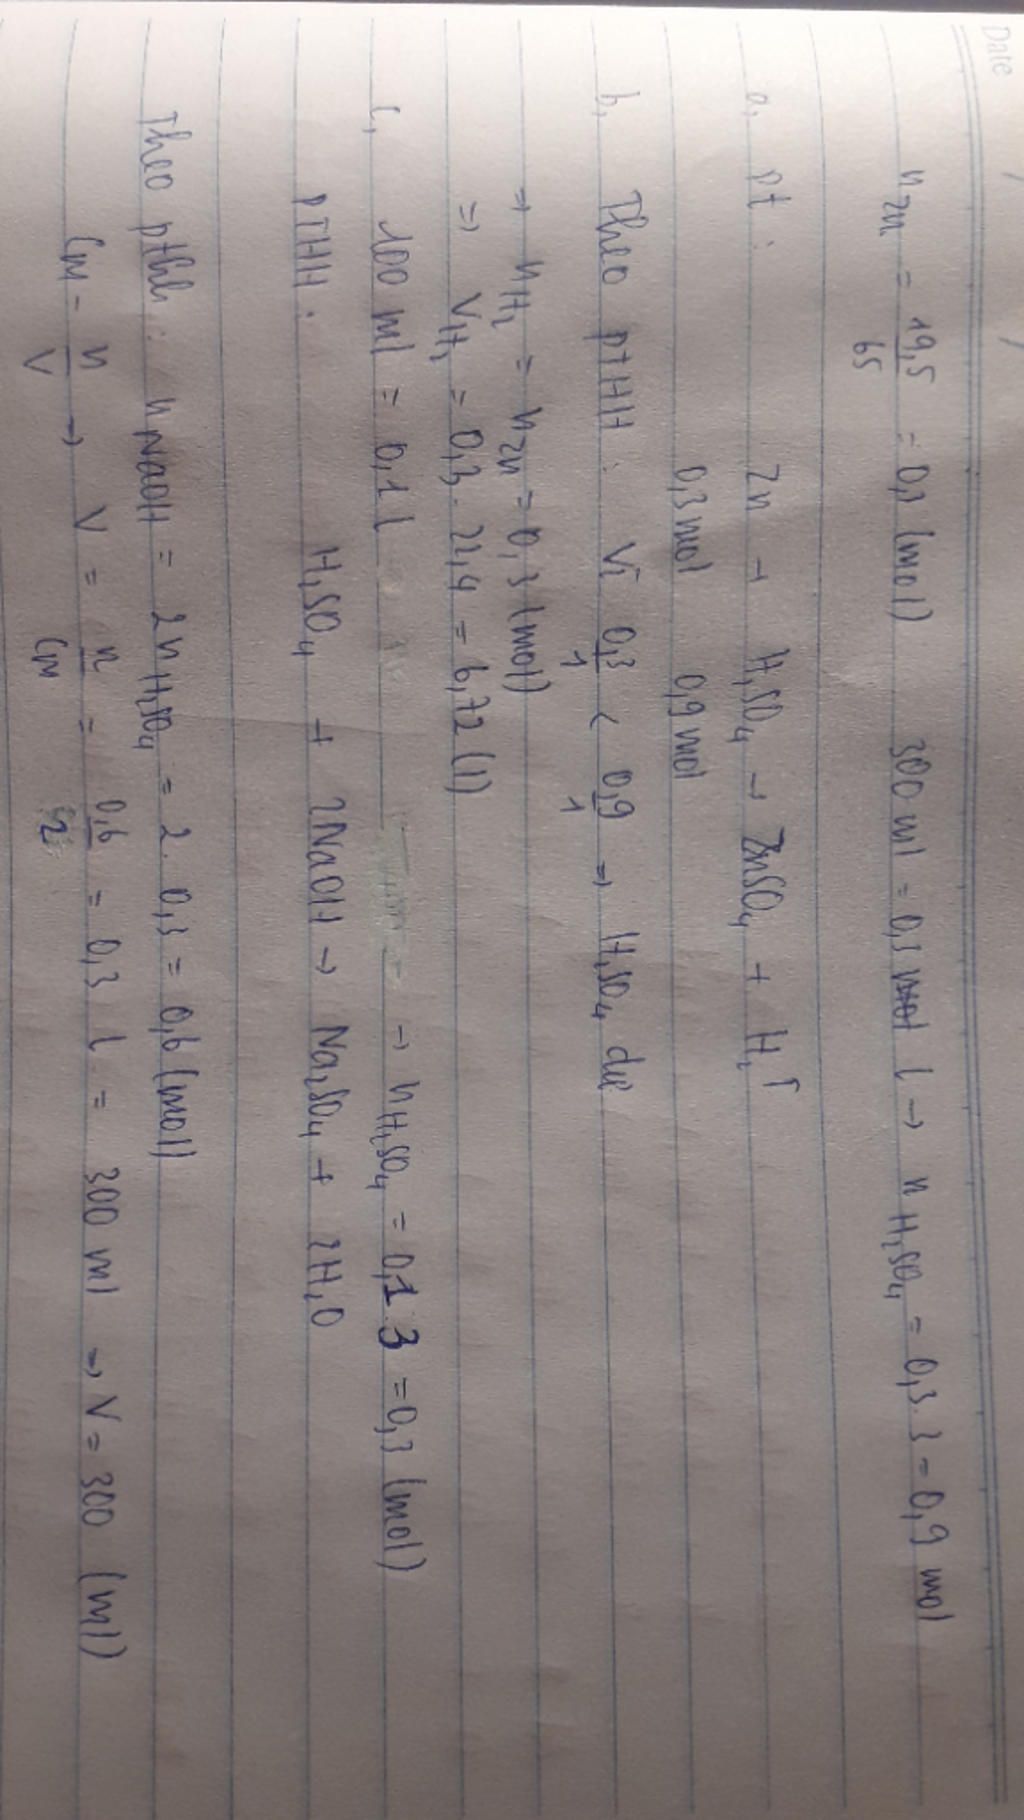 Date
n Zn = 19,5/65 = 0,3 (mol) 300 ml = 0,3 l → n H₂SO₄ = 0,3.3 = 0,9 mol
a, pt : Zn + H₂SO₄ → ZnSO₄ + H₂↑
0,3 mol 0,9 mol
b, Theo ptHH : Vì 0,3/1 < 0,9/1 ⇒ H₂SO₄ dư
⇒ n H₂ = n Zn = 0,3 (mol)
⇒ V H₂ = 0,3. 22,4 = 6,72 (l)
c, 100 ml = 0,1 l → n H₂SO₄ = 0,1.3 = 0,3 (mol)
PTHH : H₂SO₄ + 2NaOH → Na₂SO₄ + 2H₂O
Theo pthh : n NaOH = 2n H₂SO₄ = 2. 0,3 = 0,6 (mol)
CM = n/V → V = n/CM = 0,6/2 = 0,3 l = 300 ml ⇒ V = 300 (ml)